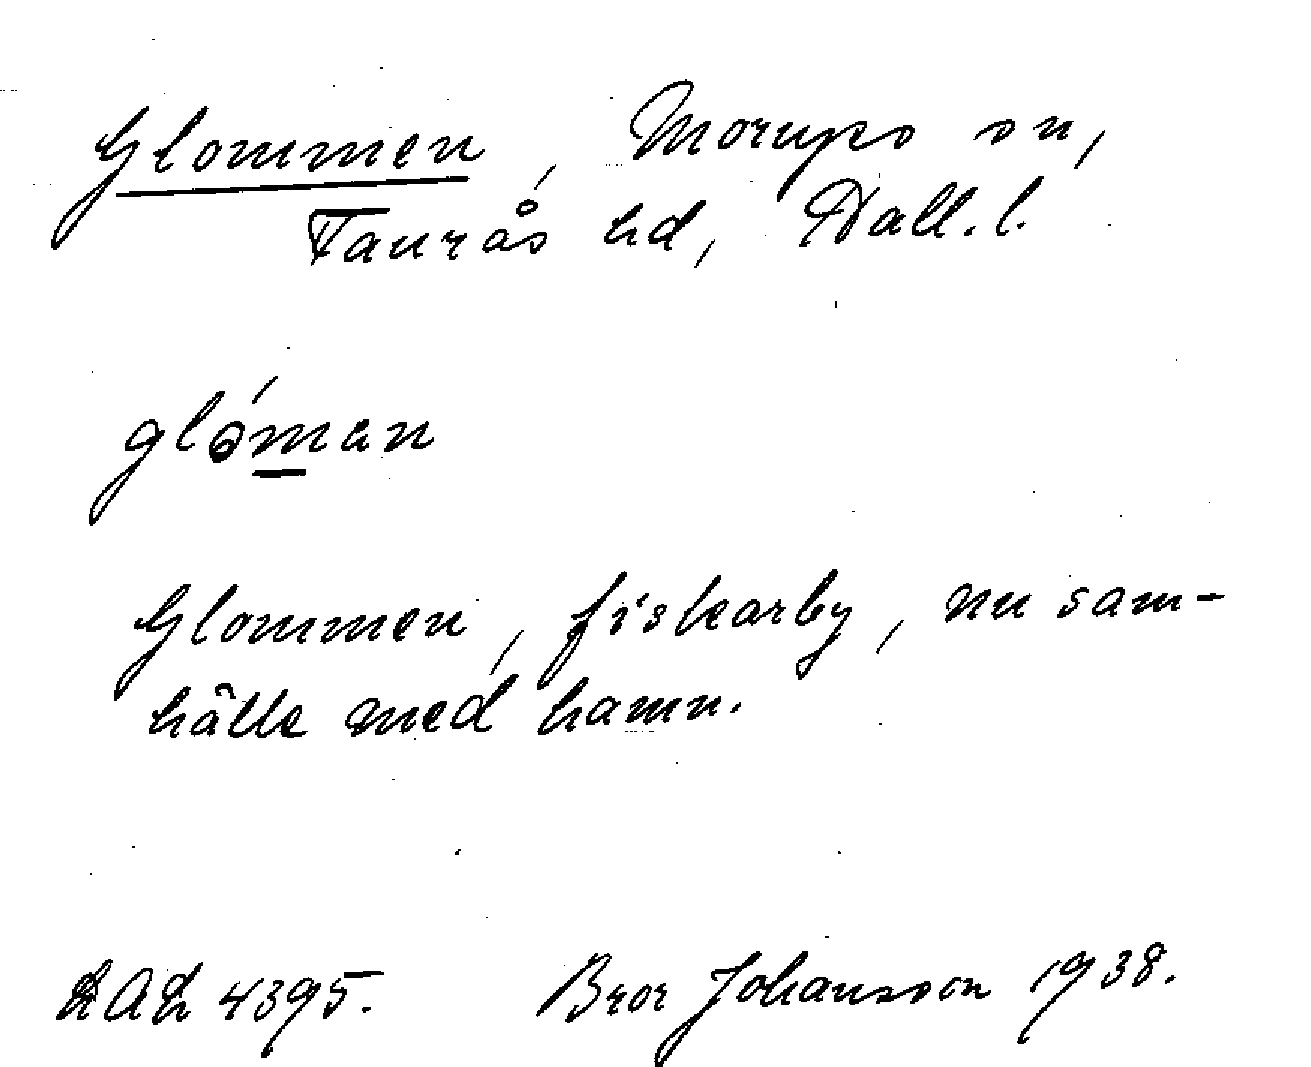 Glommen, Morups sn,
Faurås hd, Hall. l.
glóman
Glommen, fiskarby, nu sam-
hälle med hamn.
4395. Bror Johansson 1938.